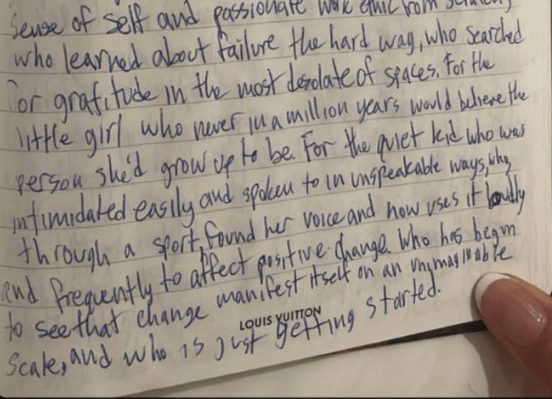 sense of self and passionate work ethic from
who learned about failure the hard way, who searched
for gratitude in the most desolate of spaces. For the
little girl who never in a million years would believe the
person she'd grow up to be. For the quiet kid who was
intimidated easily and spoken to in unspeakable ways, who,
through a sport, found her voice and now uses it loudly
and frequently to affect positive change. Who has begun
to see that change manifest itself on an unimaginable
scale, and who is just getting started.
LOUIS VUITTON